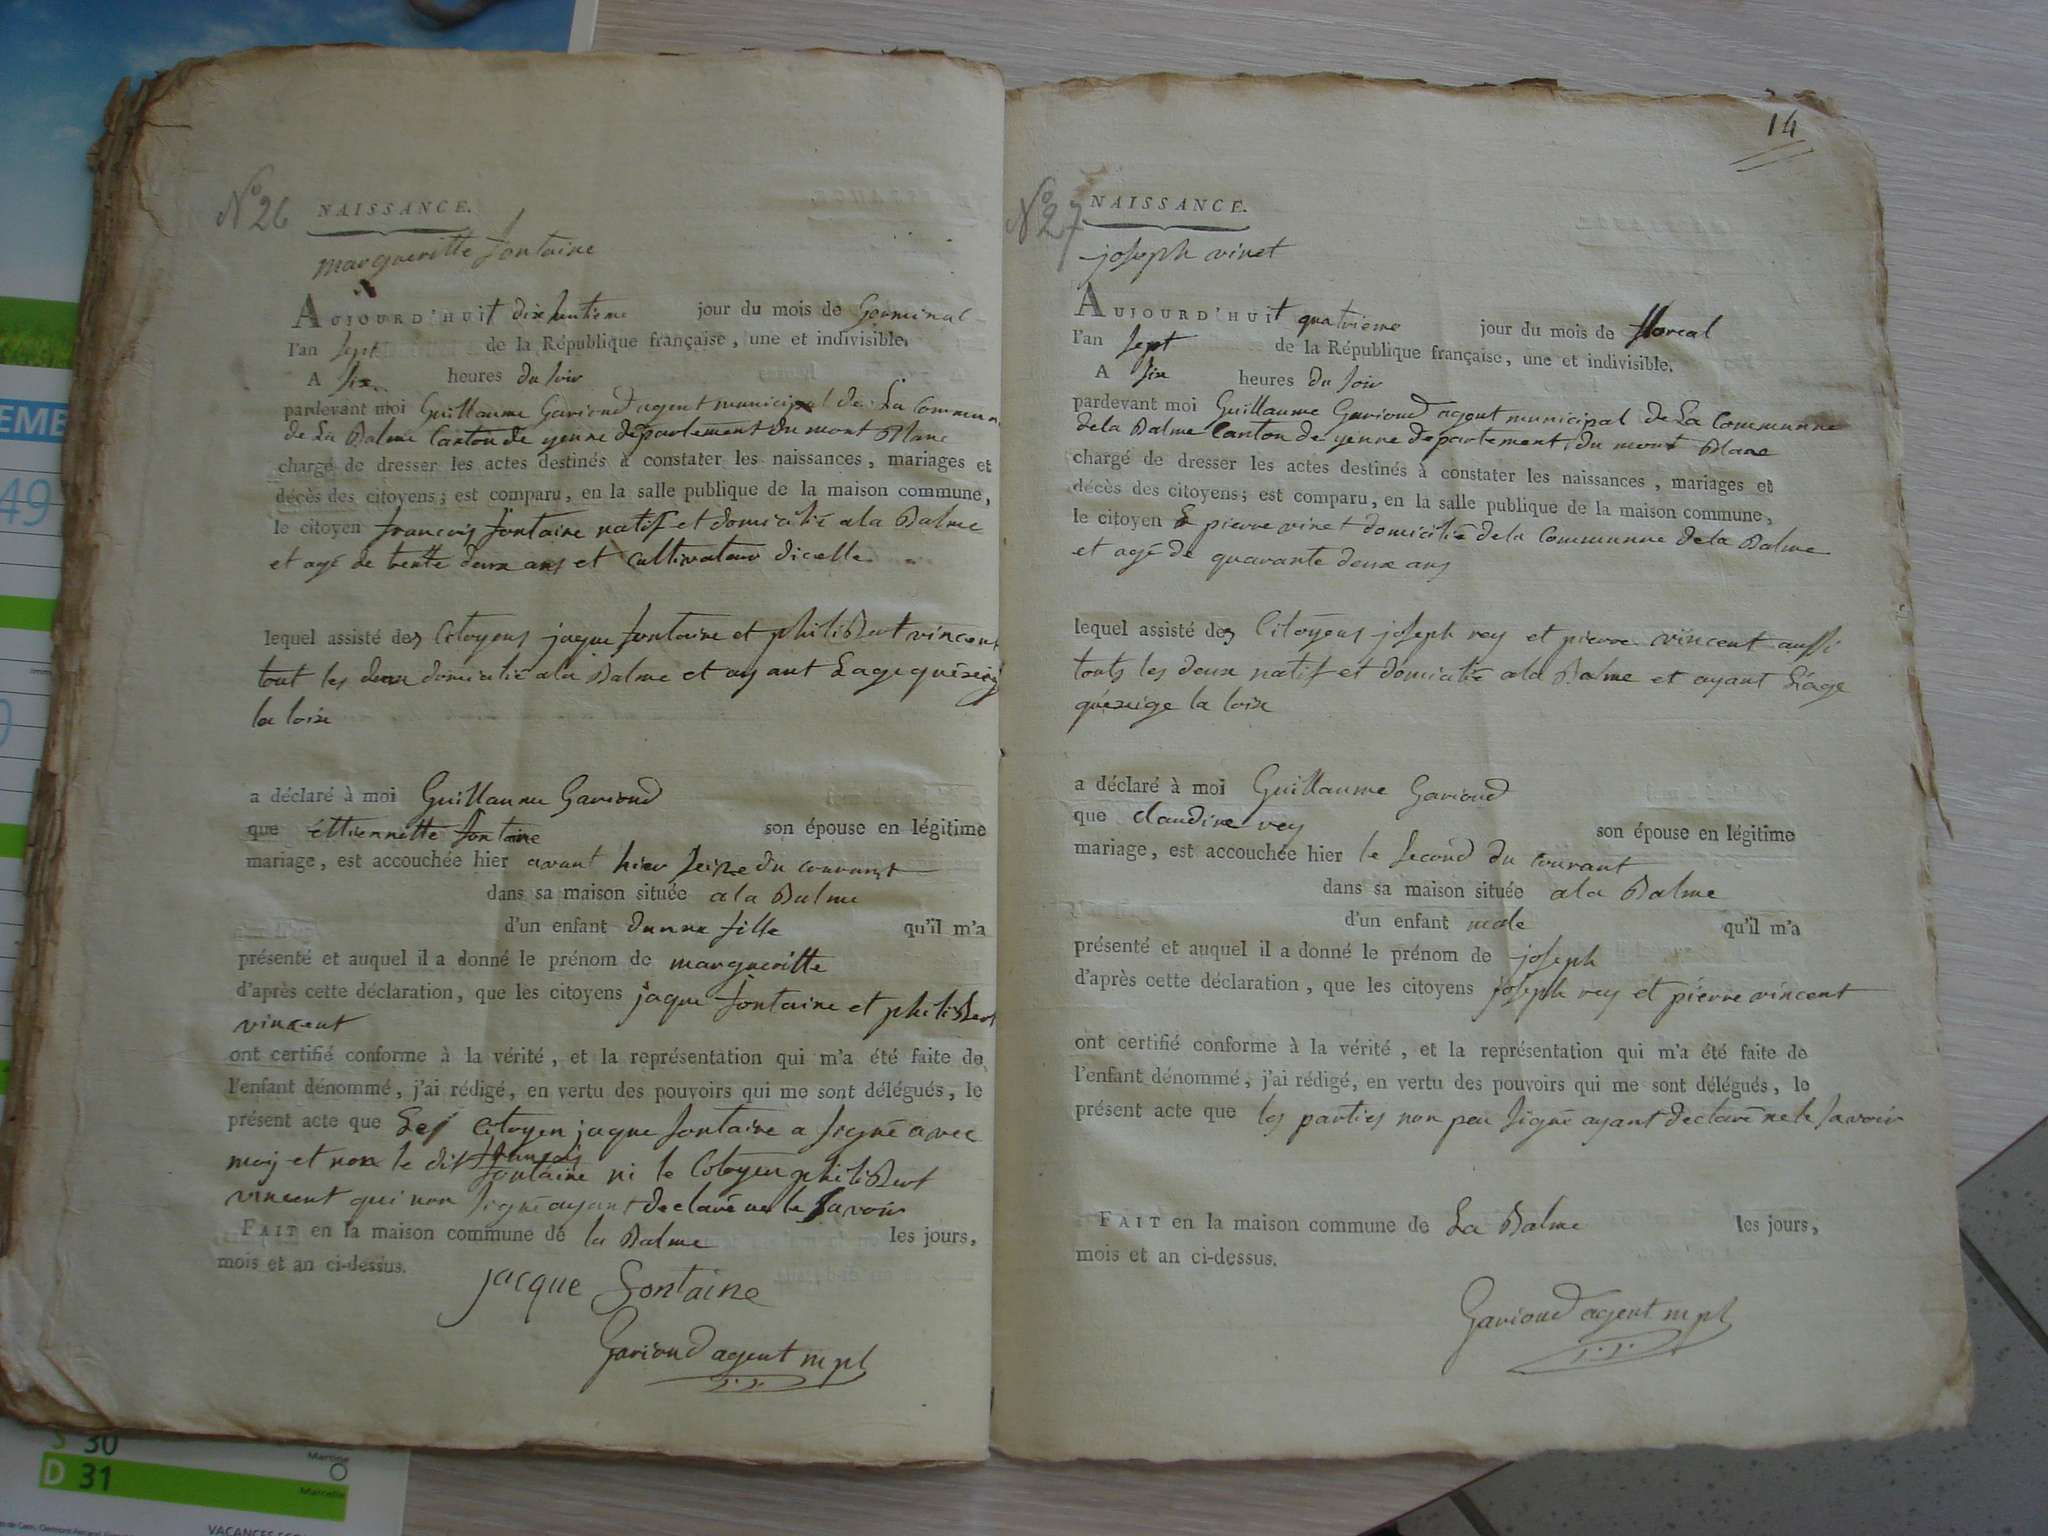 N° 26
NAISSANCE.
margueritte fontaine
AUJOURD'HUIt dix huitieme jour du mois de Germinal
l'an sept de la République française, une et indivisible,
A six heures du soir
pardevant moi Guillaume Gavioud agent municipal de La Commun
de La Balme Canton de yenne departement du mont Blanc
chargé de dresser les actes destinés à constater les naissances, mariages et
décès des citoyens; est comparu, en la salle publique de la maison commune,
le citoyen francois fontaine natif et domicilié a la Balme
et agé de trente deux ans et cultivateur dicelle
lequel assisté des Citoyens jaque fontaine et philibert vincent
tout les deux domicilié a la Balme et ayant Lage quéxige
la loix
a déclaré à moi Guillaume Gavioud
que éttiennette fontaine son épouse en légitime
mariage, est accouchée hier avant hier seize du courant
dans sa maison située a la Balme
d'un enfant dunne fille qu'il m'a
présenté et auquel il a donné le prénom de margueritte
d'après cette déclaration, que les citoyens jaque fontaine et philibert
vincent
ont certifié conforme à la vérité, et la représentation qui m'a été faite de
l'enfant dénommé, j'ai rédigé, en vertu des pouvoirs qui me sont délégués, le
présent acte que Les Citoyen jaque fontaine a signé avec
moy et non le dit francois fontaine ni le Citoyen philibert
vincent qui non signé ayant declaré ne le savoir
FAIT en la maison commune de la Balme les jours,
mois et an ci-dessus.
jacque fontaine
Gavioud agent mpl
14
N° 27
NAISSANCE.
joseph vinet
AUJOURD'HUIt quatrieme jour du mois de floreal
l'an sept de la République française, une et indivisible.
A six heures du soir
pardevant moi Guillaume Gavioud agent municipal de La Communne
de la Balme Canton de yenne departement du mont Blanc
chargé de dresser les actes destinés à constater les naissances, mariages et
décès des citoyens; est comparu, en la salle publique de la maison commune,
le citoyen pierre vinet domicilié de la Communne de la Balme
et agé de quarante deux ans
lequel assisté des Citoyens joseph rey et pierre vincent aussi
touts les deux natif et domicilié a la Balme et ayant Léage
quéxige la loix
a déclaré à moi Guillaume Gavioud
que claudine rey son épouse en légitime
mariage, est accouchée hier le second du courant
dans sa maison située a la Balme
d'un enfant male qu'il m'a
présenté et auquel il a donné le prénom de joseph
d'après cette déclaration, que les citoyens joseph rey et pierre vincent
ont certifié conforme à la vérité, et la représentation qui m'a été faite de
l'enfant dénommé, j'ai rédigé, en vertu des pouvoirs qui me sont délégués, le
présent acte que les parties non peu signé ayant declaré ne le savoir
FAIT en la maison commune de La Balme les jours,
mois et an ci-dessus.
Gavioud agent mpl
EME
49
S 30
Martine
D 31
Marcelle